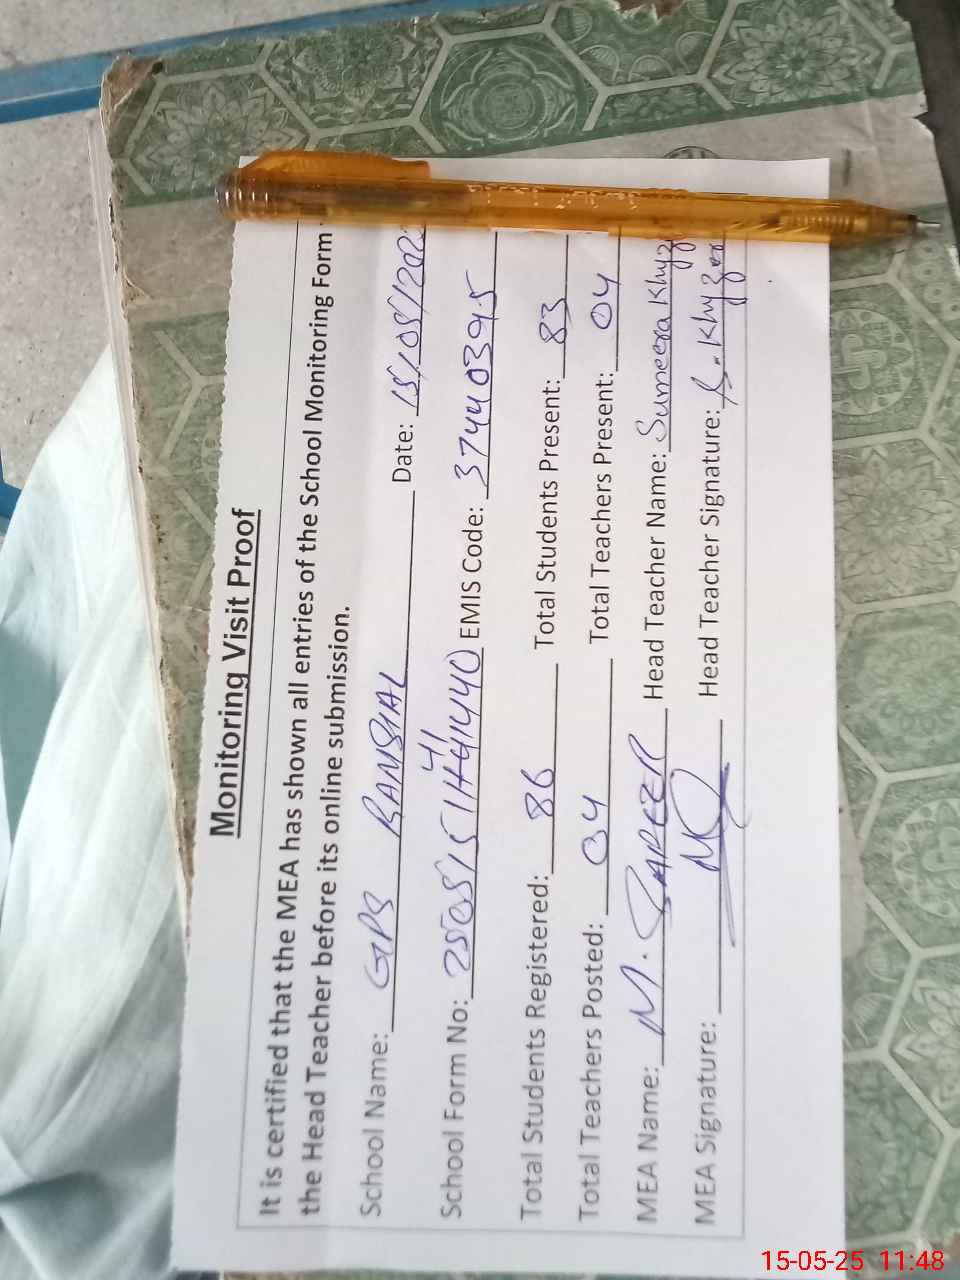 Monitoring Visit Proof
It is certified that the MEA has shown all entries of the School Monitoring Form
the Head Teacher before its online submission.
School Name: GPS BANSIAL Date: 15/05/202
School Form No: EMIS Code: 37440395
Total Students Registered: 86 Total Students Present: 83
Total Teachers Posted: 04 Total Teachers Present: 04
MEA Name: M. SAFEER Head Teacher Name: Sumeera Khyz
MEA Signature: Head Teacher Signature: S. Khyzer
15-05-25 11:48